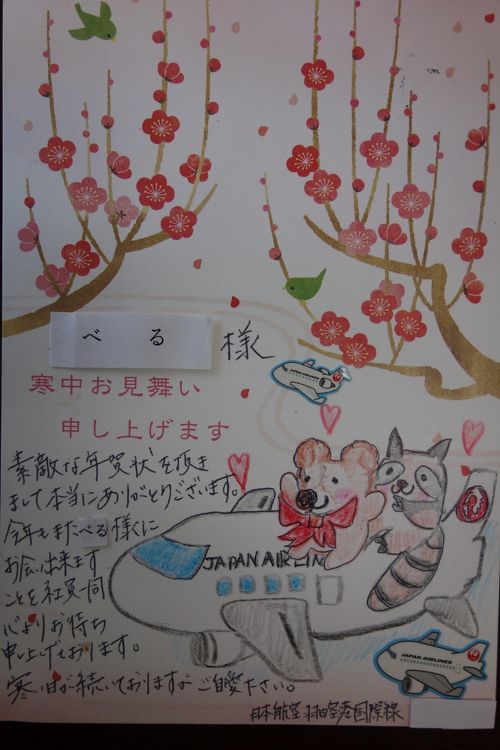 べる 様
寒中お見舞い
申し上げます
素敵な年賀状を頂き
まして本当にありがとうございます。
今年もまたべる様に
お会い出来ます
ことを社員一同
心よりお待ち
申し上げております。
寒い日が続いておりますがご自愛下さい。
JAPAN AIRLIN
JAPAN AIRLINES
日本航空 羽田空港国際線